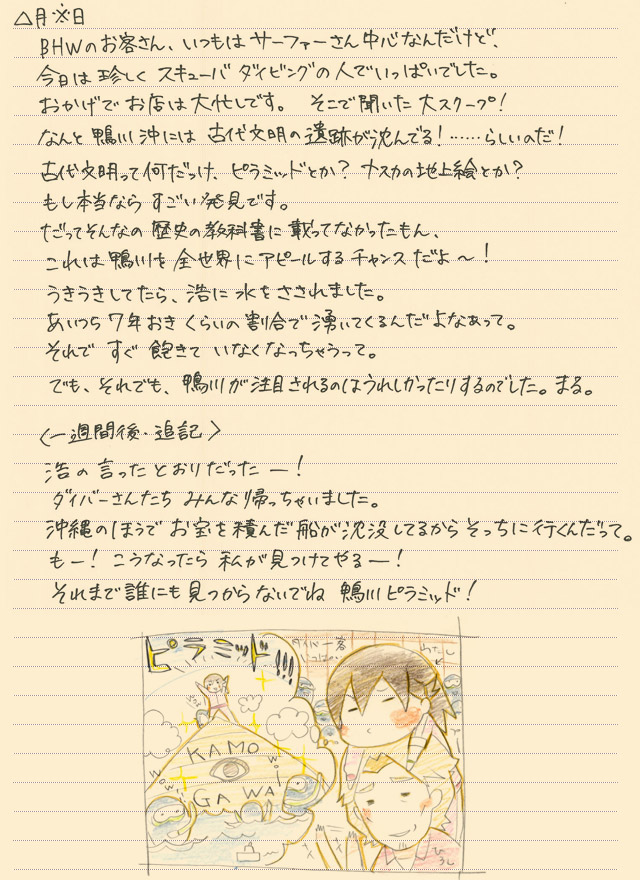 △月※日
BHWのお客さん、いつもは サーファーさん中心なんだけど、
今日は珍しく スキューバ ダイビングの人でいっぱいでした。
おかげで お店は大忙しです。 そこで聞いた 大スクープ!
なんと 鴨川沖には 古代文明の遺跡が沈んでる!……らしいのだ!
古代文明って何だっけ、ピラミッドとか? ナスカの地上絵とか?
もし本当なら すごい発見です。
だってそんなの 歴史の教科書に載ってなかったもん、
これは 鴨川を 全世界に アピールする チャンス だよ〜!
うきうきしてたら、浩に 水を さされました。
あいつら 7年おき くらいの 割合で 湧いてくるんだよなあって。
それで すぐ 飽きて いなくなっちゃうって。
でも、それでも、鴨川が注目されるのはうれしかったりするのでした。まる。
〈一週間後・追記〉
浩の言ったとおりだったー!
ダイバーさんたち みんな帰っちゃいました。
沖縄のほうで お宝を積んだ船が沈没してるからそっちに行くんだって。
もー! こうなったら 私が見つけてやるー!
それまで誰にも見つからないでね 鴨川ピラミッド!
ピラミッド!!!
ダイバー客
いっぱい
わたし
KAMO
GAWA
WOW!
WOW!
ひろし